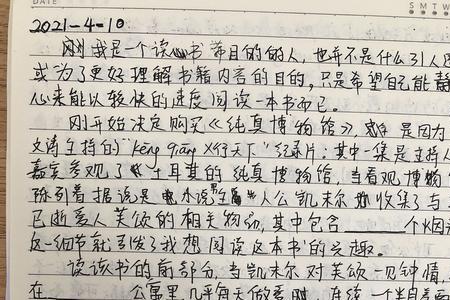 DATE
S M T W
2021-4-10
刚我是个读书筹目的的人，也并不是什么引人
或为了更好理解书籍内容的目的，只是希望自己能静
心来能以较快的速度阅读一本书而已。
刚开始决定购买《纯真博物馆》，是因为
文涛主持的"keng qiang 行天下"纪录片：其中一集是主持人
嘉宾参观了土耳其的纯真博物馆，当看观博物
陈列着据说是小说主人公凯末尔收集了与
已断离人芙颂的相关物品，其中包含____个烟
这一细节就引发了我想阅读这本书的兴趣。
读该书的前部分，当凯末尔对芙颂一见钟情，
在____公寓里几乎每天做爱时，连续一个半月